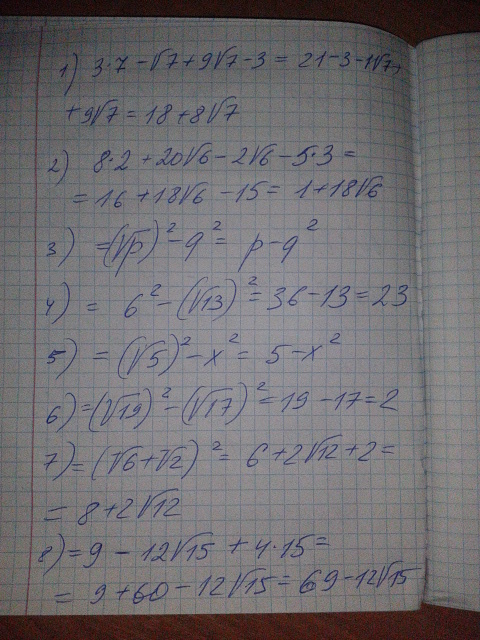 1) 3·7 - √7 + 9√7 - 3 = 21 - 3 - 1√7 +
+ 9√7 = 18 + 8√7
2) 8·2 + 20√6 - 2√6 - 5·3 =
= 16 + 18√6 - 15 = 1 + 18√6
3) = (√p)² - q² = p - q²
4) = 6² - (√13)² = 36 - 13 = 23
5) = (√5)² - x² = 5 - x²
6) = (√19)² - (√17)² = 19 - 17 = 2
7) = (√6 + √2)² = 6 + 2√12 + 2 =
= 8 + 2√12
8) = 9 - 12√15 + 4·15 =
= 9 + 60 - 12√15 = 69 - 12√15